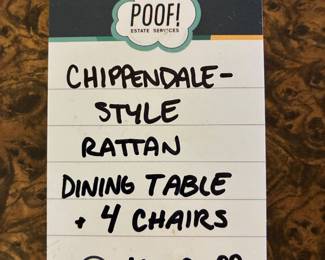 POOF!
ESTATE SERVICES
CHIPPENDALE-
STYLE
RATTAN
DINING TABLE
+ 4 CHAIRS